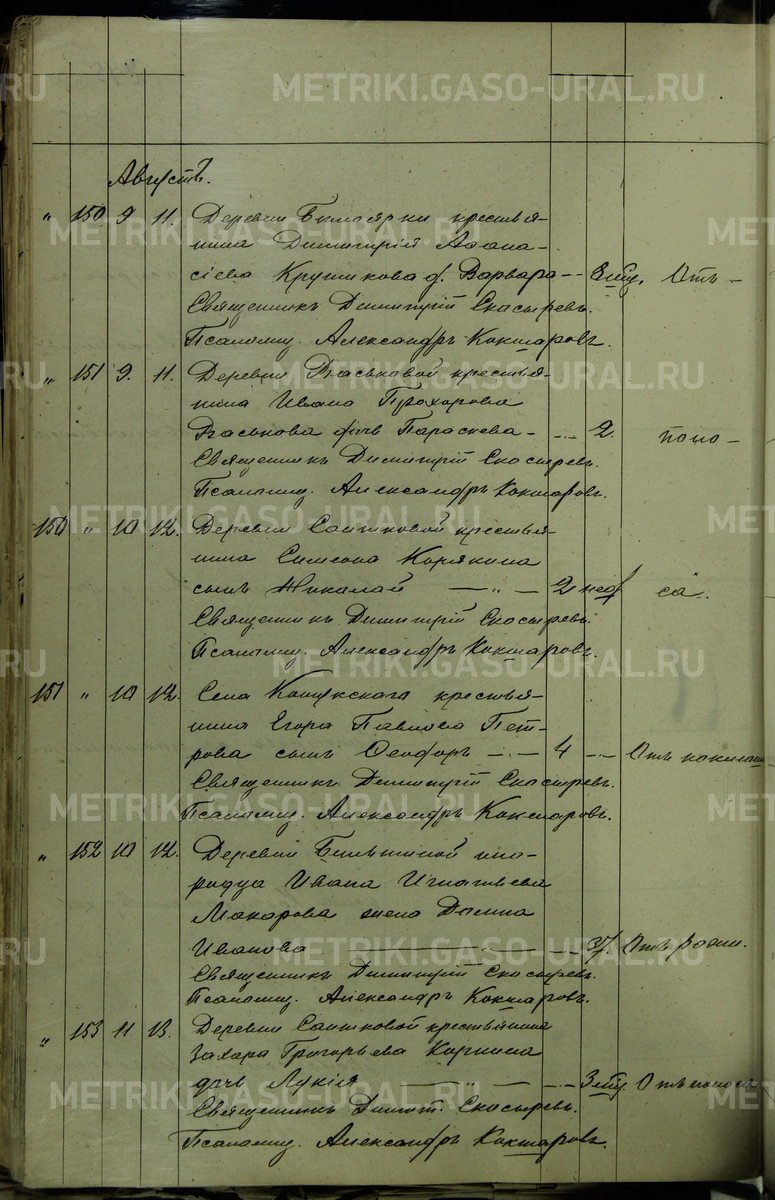 Августъ.
" 150 9 11. Деревни крестья-
нина Димитрія Аѳана-
сіева Крутикова д. Варвара - - 3 мѣс. Отъ -
Священникъ Димитрій Скосыревъ.
Псаломщ. Александръ Кокшаровъ.
" 151 9. 11. Деревни Васьковой крестья-
нина Ивана Прохорова
Васькова дочь Параскева - - - 2. поно -
Священникъ Димитрій Скосыревъ.
Псаломщ. Александръ Кокшаровъ.
150 " 10 12. Деревни крестья-
нина Симеона Корякина
сынъ Николай — " — 2 нед са.
Священникъ Димитрій Скосыревъ.
Псаломщ. Александръ Кокшаровъ.
151 " 10 12. Села крестья-
нина Егора Павлова Пет-
рова сынъ Ѳеодоръ - - - 4 - - Отъ
Священникъ Димитрій Скосыревъ.
Псаломщ. Александръ Кокшаровъ.
" 152 10 12. Деревни ино-
родца Ивана Игнатьева
Макарова жена Домна
Иванова — - — 37. Отъ родин.
Священникъ Димитрій Скосыревъ.
Псаломщ. Александръ Кокшаровъ.
" 153 11 13. Деревни крестьянина
Захара Григорьева
дочь Лукія — " — 3 мѣс. Отъ поноса
Священникъ Димит. Скосыревъ.
Псаломщ. Александръ Кокшаровъ.
METRIKI.GASO-URAL.RU